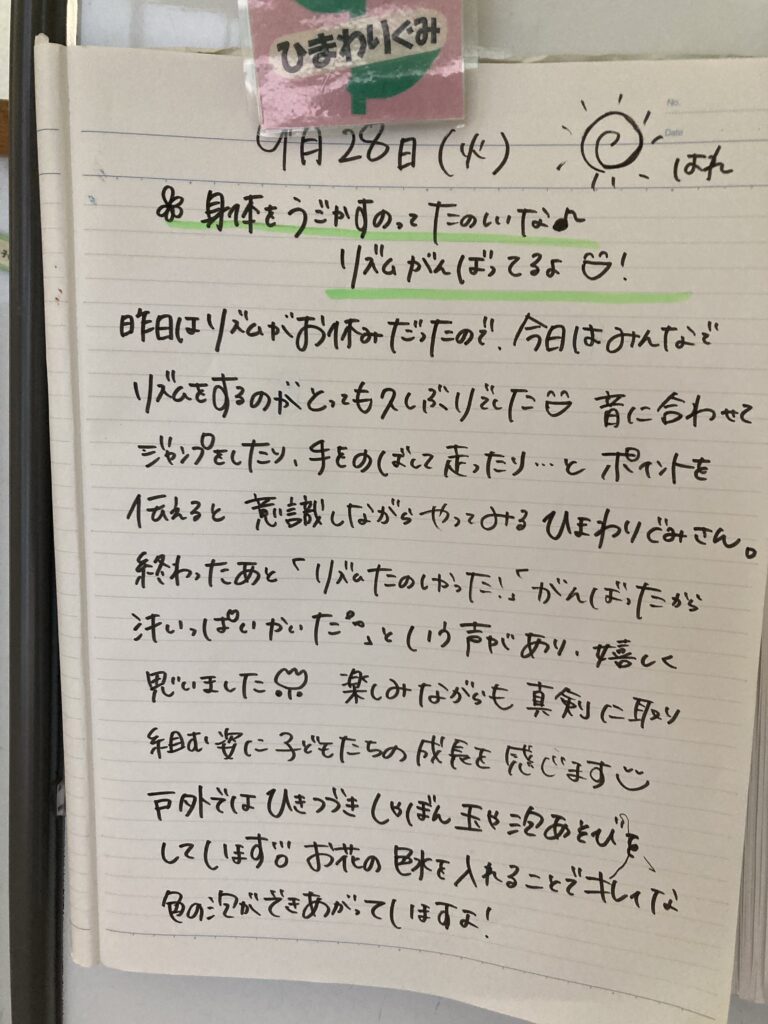 ひまわりぐみ
9月28日(火)
No.
Date
はれ
身体をうごかすのってたのしいな♪
リズムがんばってるよ!
昨日はリズムがお休みだったので、今日はみんなで
リズムをするのがとっても久しぶりでした 音に合わせて
ジャンプをしたり、手をのばして走ったり…と ポイントを
伝えると 意識しながらやってみる ひまわりぐみさん。
終わったあと「リズムたのしかった!」「がんばったから
汗いっぱいかいた〜」という声があり、嬉しく
思いました 楽しみながらも 真剣に取り
組む姿に 子どもたちの成長を感じます
戸外では ひきつづき しゃぼん玉や泡あそびを
しています お花の色水を入れることでキレイな
色の泡ができあがっていますよ!